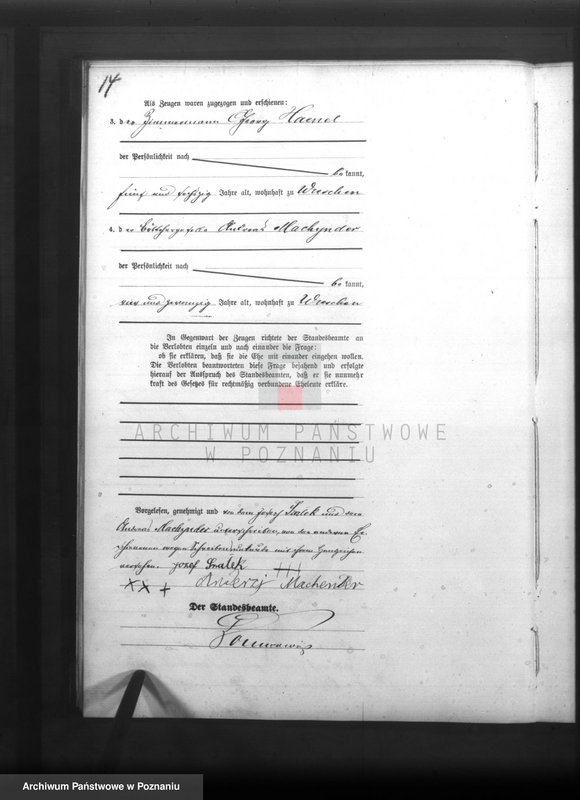 14
Als Zeugen waren zugezogen und erschienen:
3. der Zimmermann Georg Haenel
der Persönlichkeit nach
bekannt,
fünf und sechzig Jahre alt, wohnhaft zu Wreschen
4. der Böttchergeselle Andreas Machynder
der Persönlichkeit nach
bekannt,
vier und zwanzig Jahre alt, wohnhaft zu Wreschen
In Gegenwart der Zeugen richtete der Standesbeamte an
die Verlobten einzeln und nach einander die Frage:
ob sie erklären, daß sie die Ehe mit einander eingehen wollen.
Die Verlobten beantworteten diese Frage bejahend und erfolgte
hierauf der Ausspruch des Standesbeamten, daß er sie nunmehr
kraft des Gesetzes für rechtmäßig verbundene Eheleute erkläre.
ARCHIWUM PAŃSTWOWE
W POZNANIU
Vorgelesen, genehmigt und von dem Josef und dem
Andreas Machynder unterschrieben, von den anderen Er-
schienenen wegen Schreibensunkunde mit ihrem Handzeichen
versehen. Jozef +++
XX + Andrzej Machender
Der Standesbeamte.
Archiwum Państwowe w Poznaniu